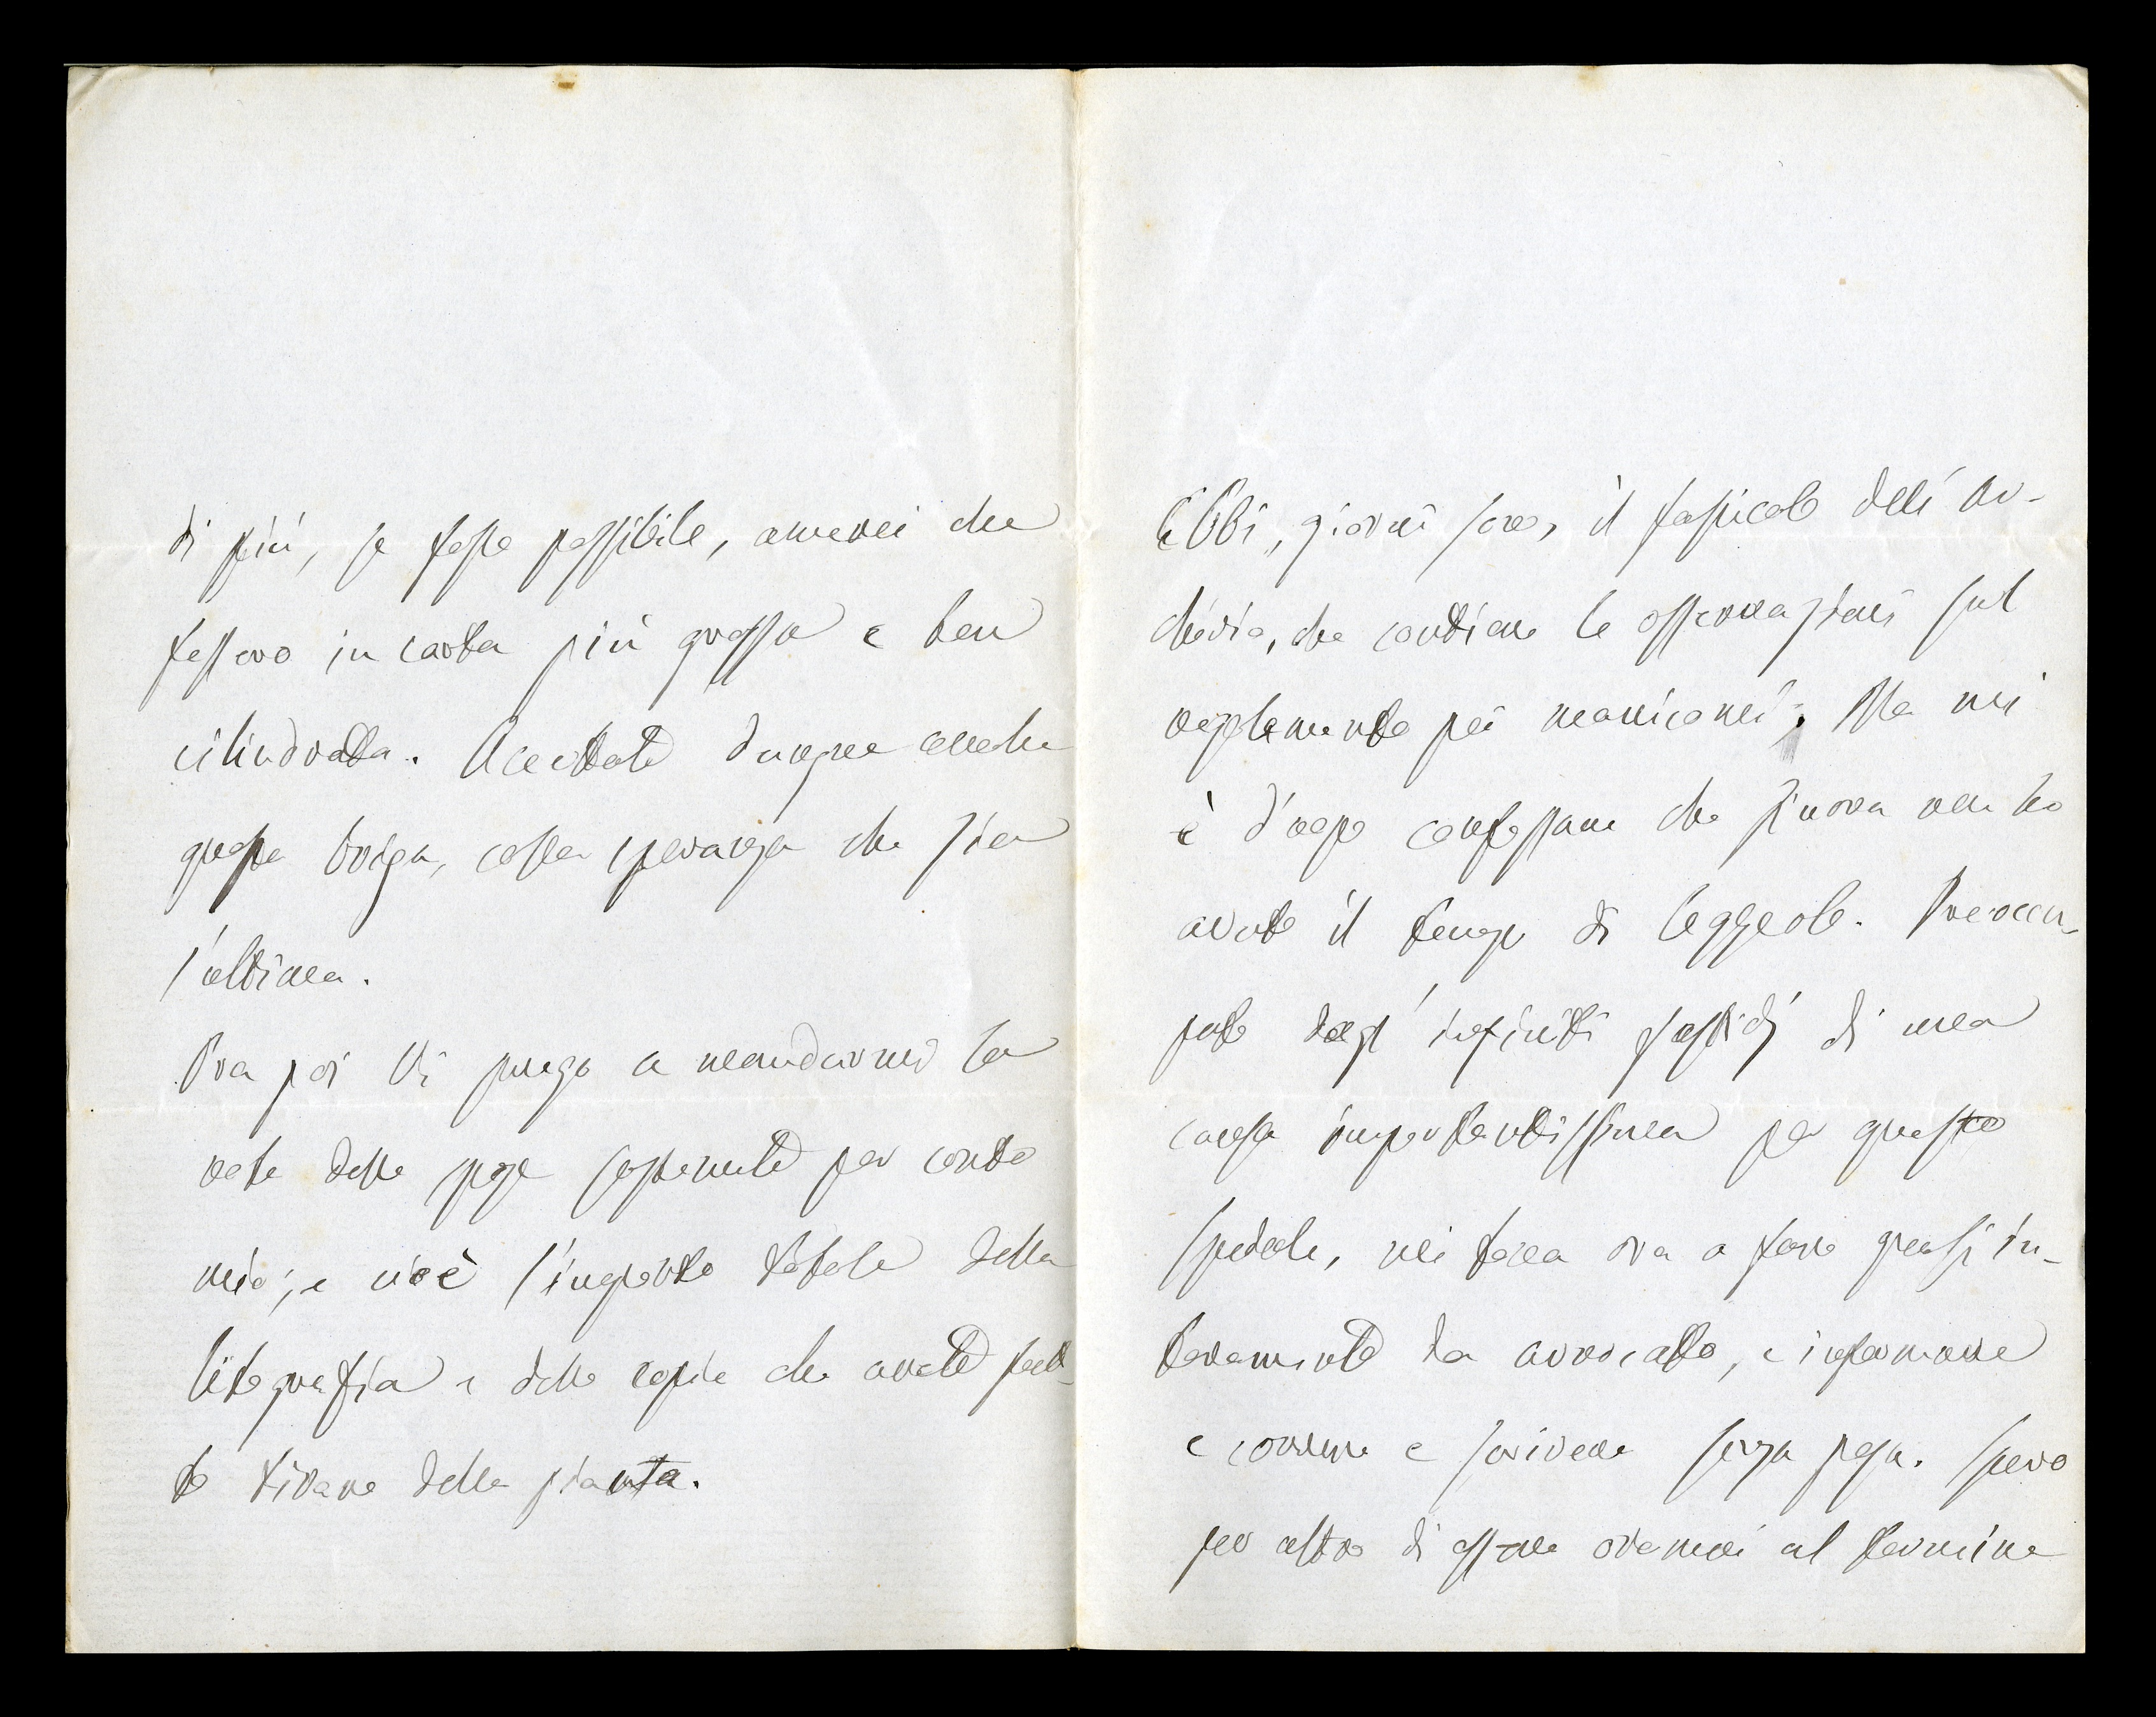 di più, se fosse possibile, amerei che
fossero in carta più grossa e ben
cilindrata. Accettate dunque anche
questa briga, colla speranza che sia
l'ultima.
Ora poi Vi prego a mandarmi la
nota delle spese sostenute per conto
mio; e cioè l'importo totale della
litografia e delle copie che avete fatt-
to tirare della pianta.
Ebbi, giorni sono, il fascicolo dell'Ar-
chivio, che contiene le osservazioni sul
regolamento pei manicomi. Ma mi
è d'uopo confessare che finora non ho
avuto il tempo di leggerle. Preoccu-
pato dagl'infiniti fastidj di una
causa importantissima per questo
Spedale, mi tocca ora a fare quasi in-
teramente da avvocato, e informare
e correre e scrivere senza posa. Spero
per altro di essere oramai al termine